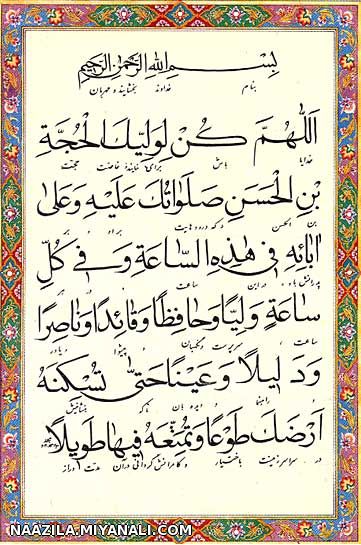 بِسْمِ اللهِ الرَّحْمنِ الرَّحيمِ
بنام خداوند بخشاینده و مهربان
اَللّهُمَّ كُنْ لِوَلِيِّكَ الْحُجَّةِ
خدایا باش برای نماینده خاصت حجت
بْنِ الْحَسَنِ صَلَواتُكَ عَلَيْهِ وَعَلى
بن الحسن که درودهایت بر او و بر
ابائِهِ في هذِهِ السّاعَةِ وَ في كُلِّ
پدرانش باد در این ساعت و در هر
ساعَةٍ وَلِيّاً وَحافِظاً وَقائِداً وَناصِراً
ساعت سرپرست و نگهبان و پیشوا و یاور
وَدَليلاً وَعَيْناً حَتّى تُسْكِنَهُ
و راهنما و دیده بان تا که
اَرْضَكَ طَوْعاً وَتُمَتِّعَهُ فيها طَويلاً
در سراسر زمینت باختیار و کامرانش گردانی در آن مدت دراز
NAAZILA.MIYANALI.COM